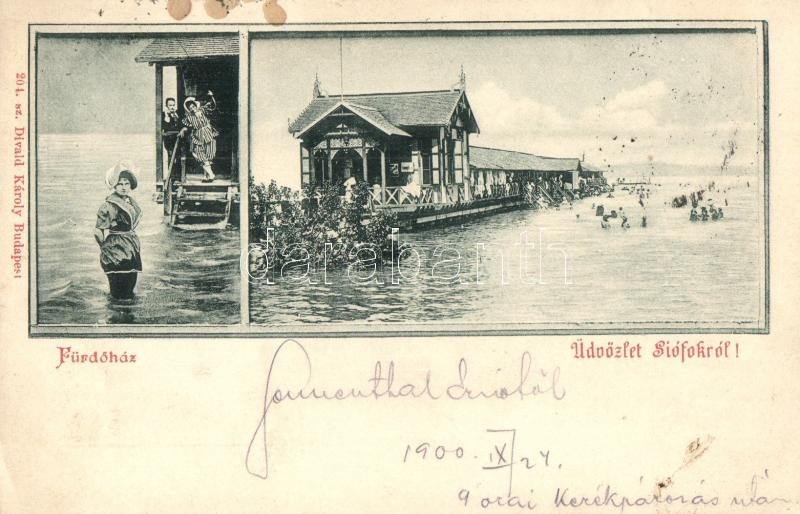 204. sz. Divald Károly Budapest
darabanth
Fürdőház
Üdvözlet Siófokról!
Sonnenthal
1900. IX/24.
9 órai Kerékpározás után